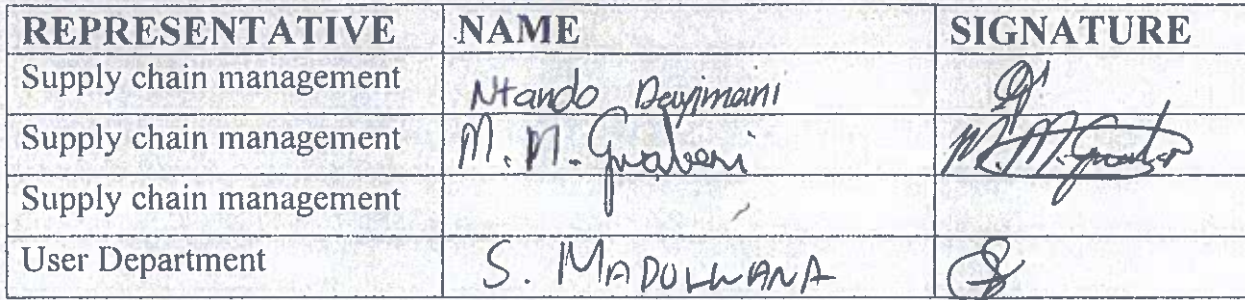 REPRESENTATIVE NAME SIGNATURE
Supply chain management Ntando
Supply chain management M. M.
Supply chain management
User Department S. MADOLWANA